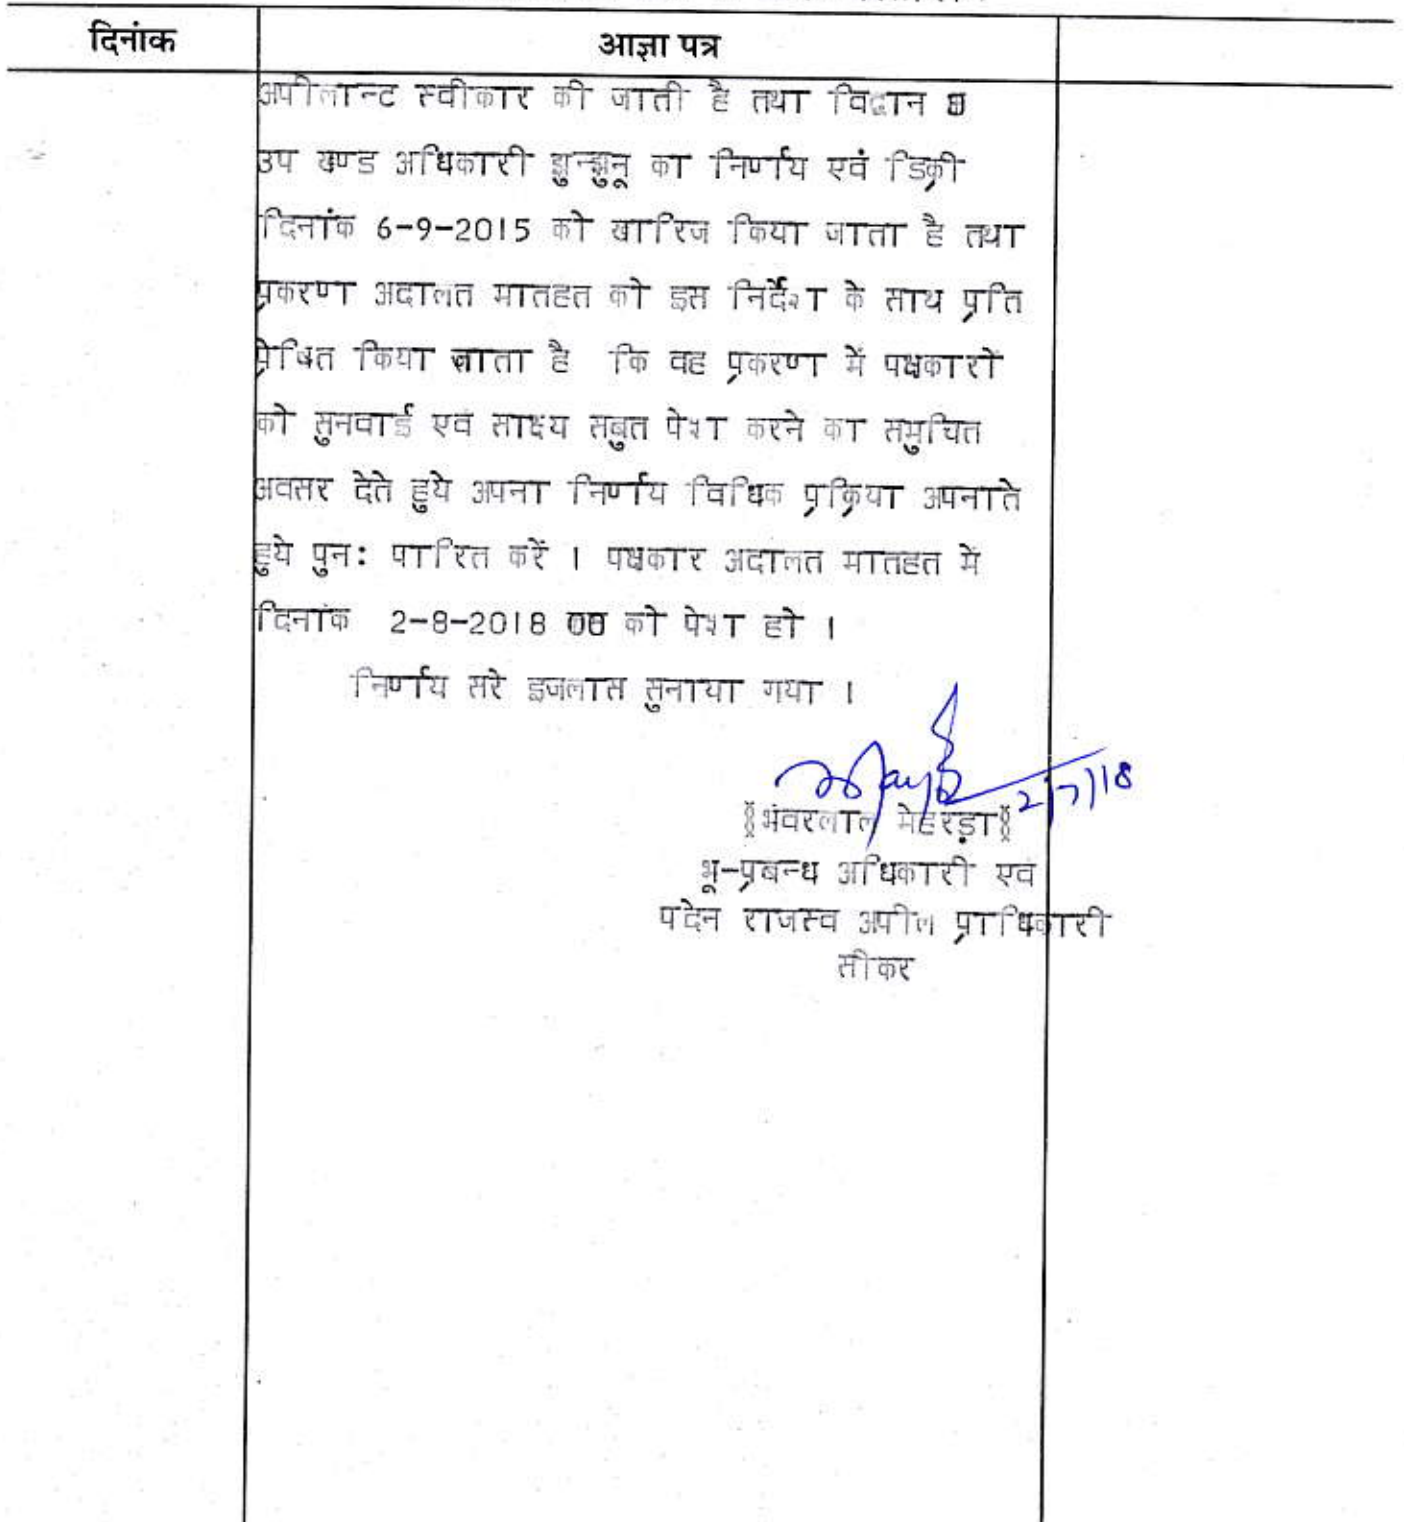 दिनांक आज्ञा पत्र
अपीलान्ट स्वीकार की जाती है तथा विद्वान
उप खण्ड अधिकारी झुन्झुनू का निर्णय एवं डिक्री
दिनांक 6-9-2015 को खारिज किया जाता है तथा
प्रकरण अदालत मातहत को इस निर्देश के साथ प्रति
प्रेषित किया जाता है कि वह प्रकरण में पक्षकारों
को सुनवाई एवं साक्ष्य सबुत पेश करने का समुचित
अवसर देते हुये अपना निर्णय विधिक प्रक्रिया अपनाते
हुये पुन: पारित करें । पक्षकार अदालत मातहत में
दिनांक 2-8-2018 को पेश हो ।
निर्णय सरे इजलास सुनाया गया ।
2/7/18
भंवरलाल मेहरड़ा
भू-प्रबन्ध अधिकारी एवं
पदेन राजस्व अपील प्राधिकारी
सीकर